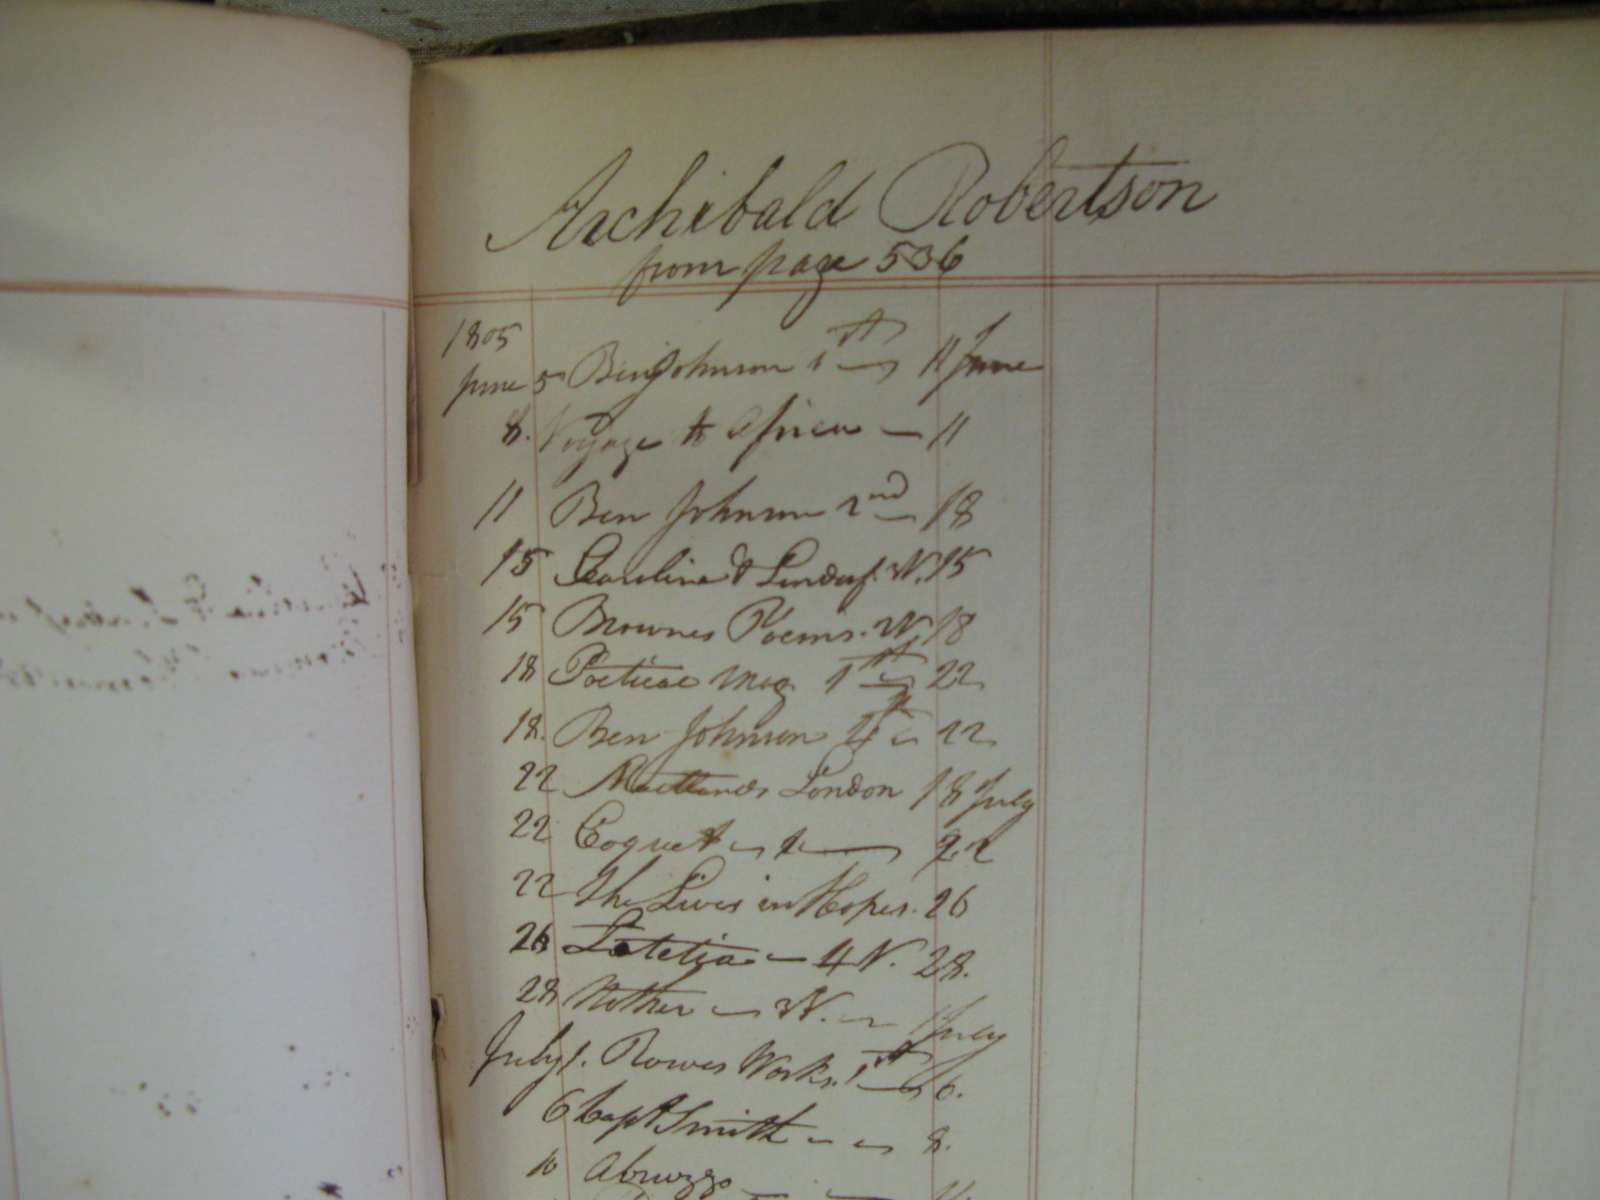 Archibald Robertson
from page 536
1805
June 5 Ben Johnson 1st 11 June
8. Voyage to Africa 11
11 Ben Johnson 2nd 18
15 Caroline & Lindorf. W. 15
15 Brownes Poems. W. 18
18 Poetical Mag 1st 22
18. Ben Johnson 22
22 Maitlands London 18 July
22 Coquet 22
22 She Lives in Hopes. 26
26 Letetia 4 V. 28.
28 Mother W. 1 July
July 1. Rowes Works. 1st 6.
6 Capt Smith 8.
10 Abruzzo